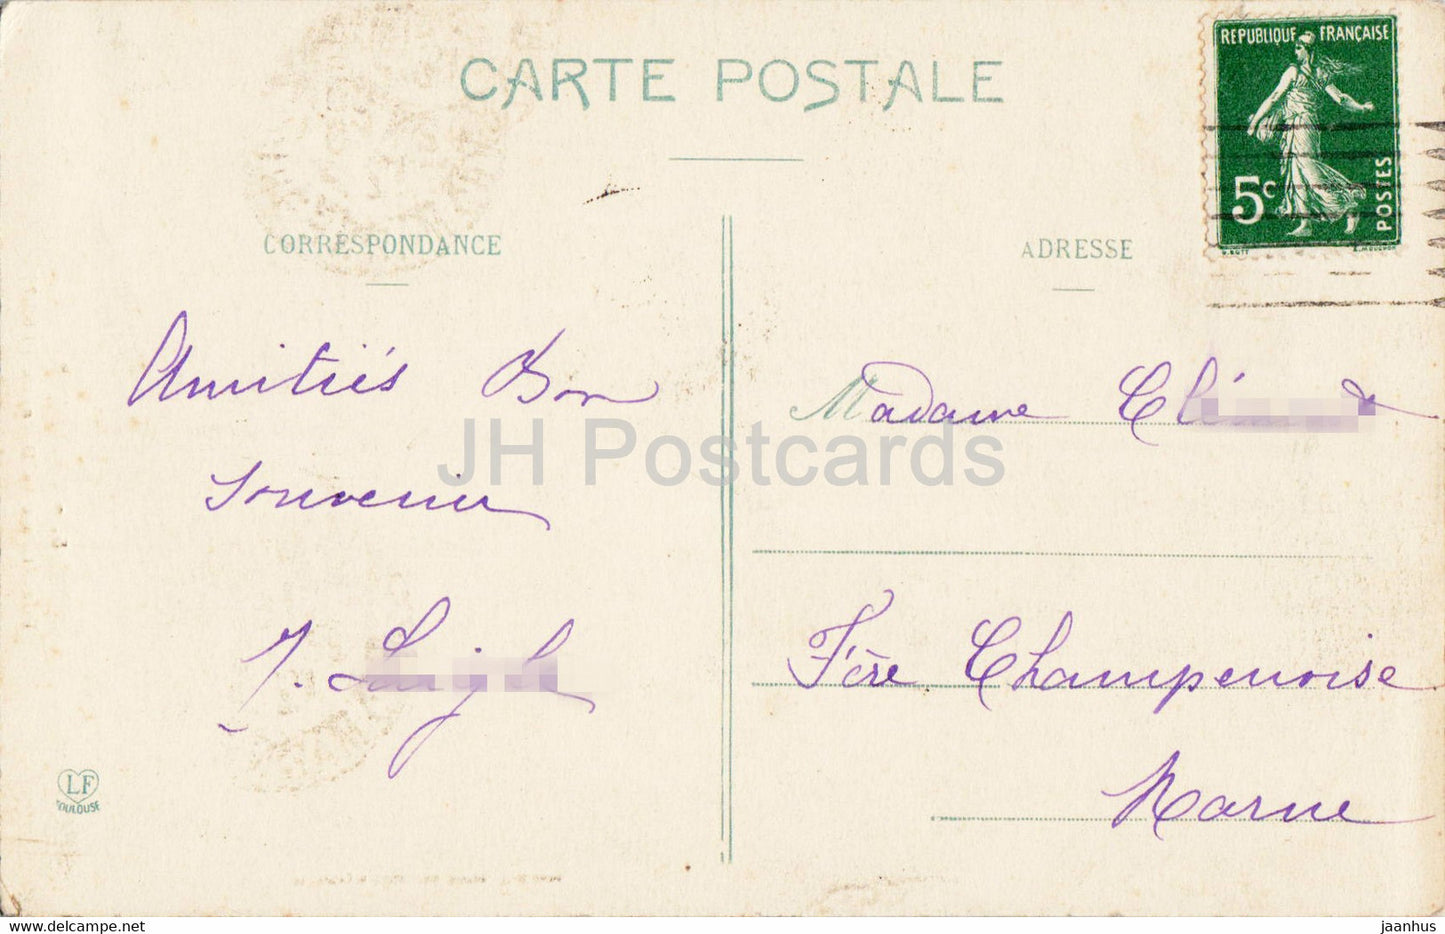 CARTE POSTALE
REPUBLIQUE FRANÇAISE
5c
POSTES
CORRESPONDANCE
ADRESSE
Amitiés Bon
Souvenir
Madame
JH Postcards
Fère Champenoise
Marne
LF
TOULOUSE
delcampe.net
jaanhus